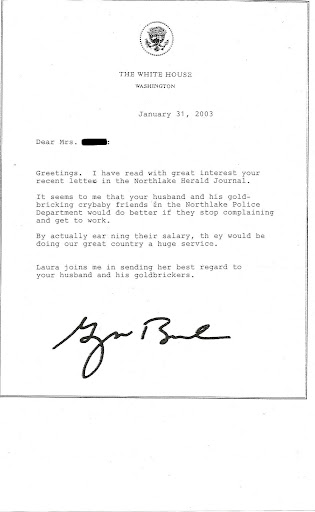 THE WHITE HOUSE
WASHINGTON
January 31, 2003
Dear Mrs. :
Greetings. I have read with great interest your
recent letter in the Northlake Herald Journal.
It seems to me that your husband and his gold-
bricking crybaby friends in the Northlake Police
Department would do better if they stop complaining
and get to work.
By actually ear ning their salary, th ey would be
doing our great country a huge service.
Laura joins me in sending her best regard to
your husband and his goldbrickers.